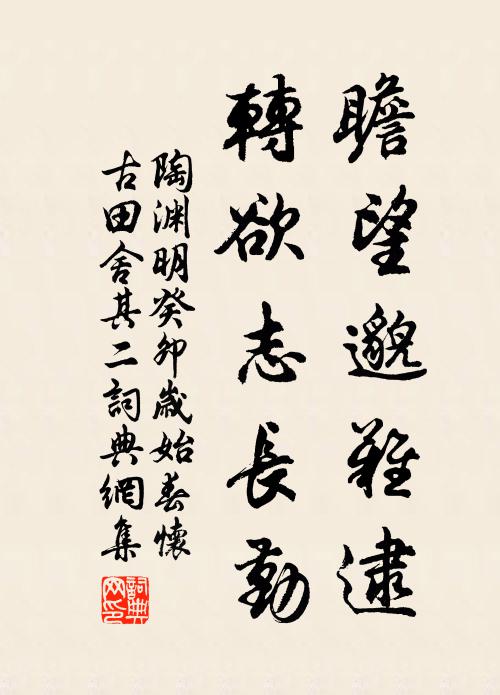 瞻望邈難逮
轉欲志長勤
陶淵明癸卯歲始春懷
古田舍其二詞典網集
詞典
网印